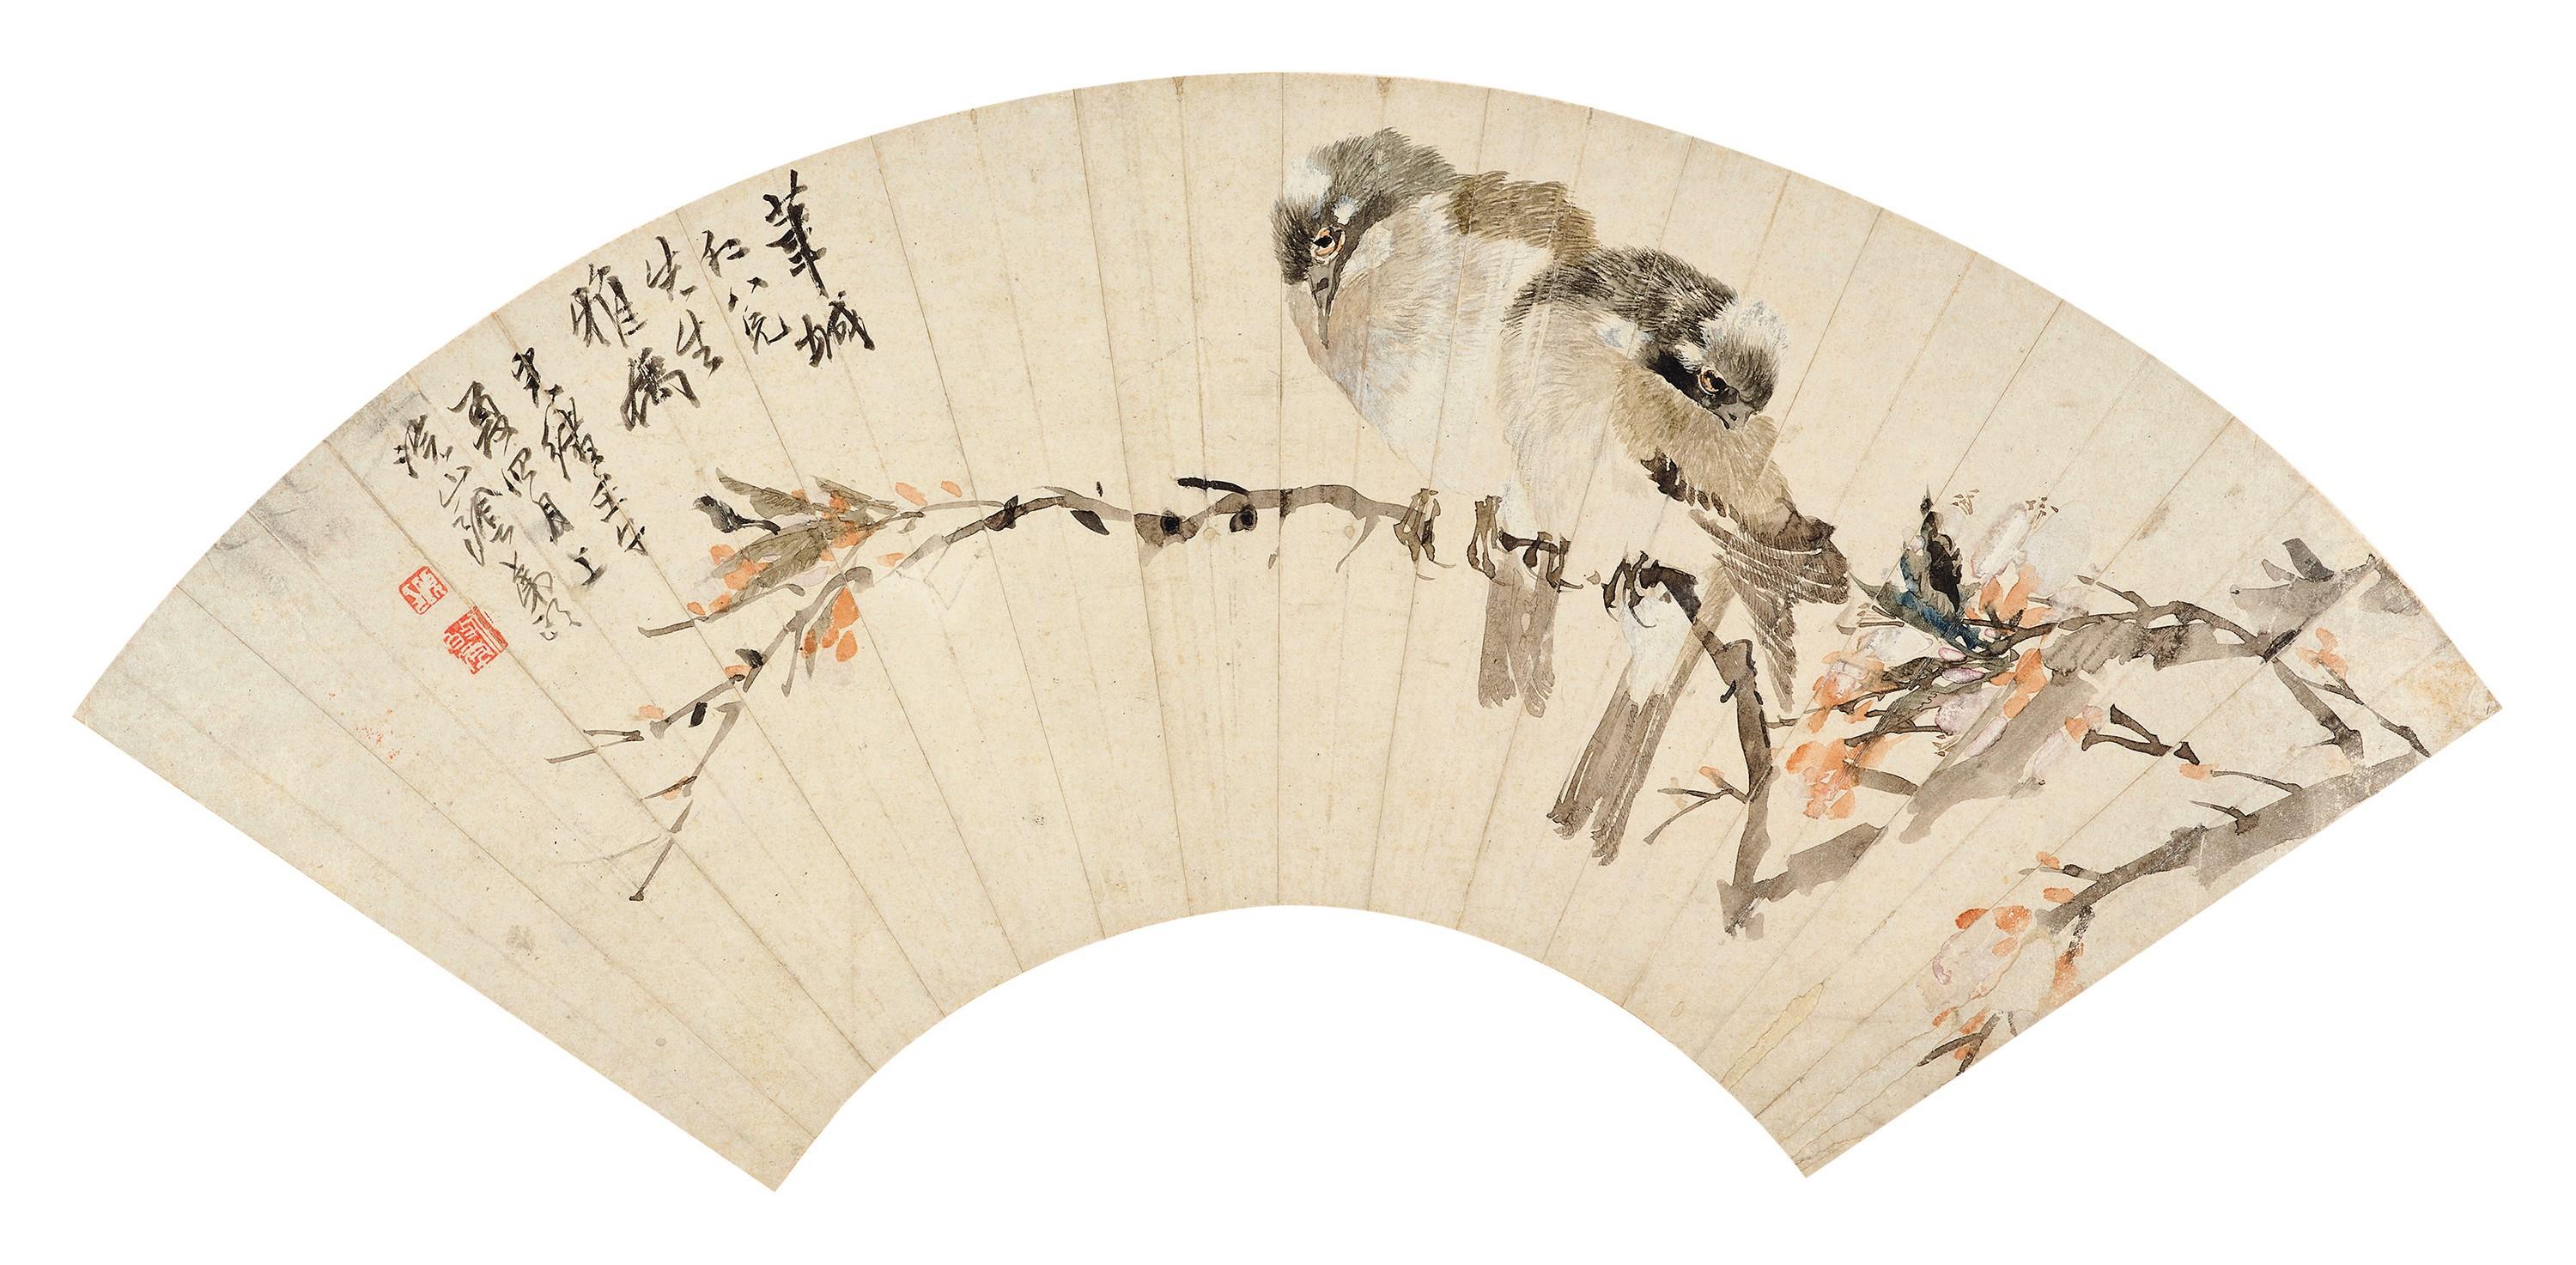 華城
仁兄
先生
雅屬
光緒壬午
夏四月上
浣山陰任頤